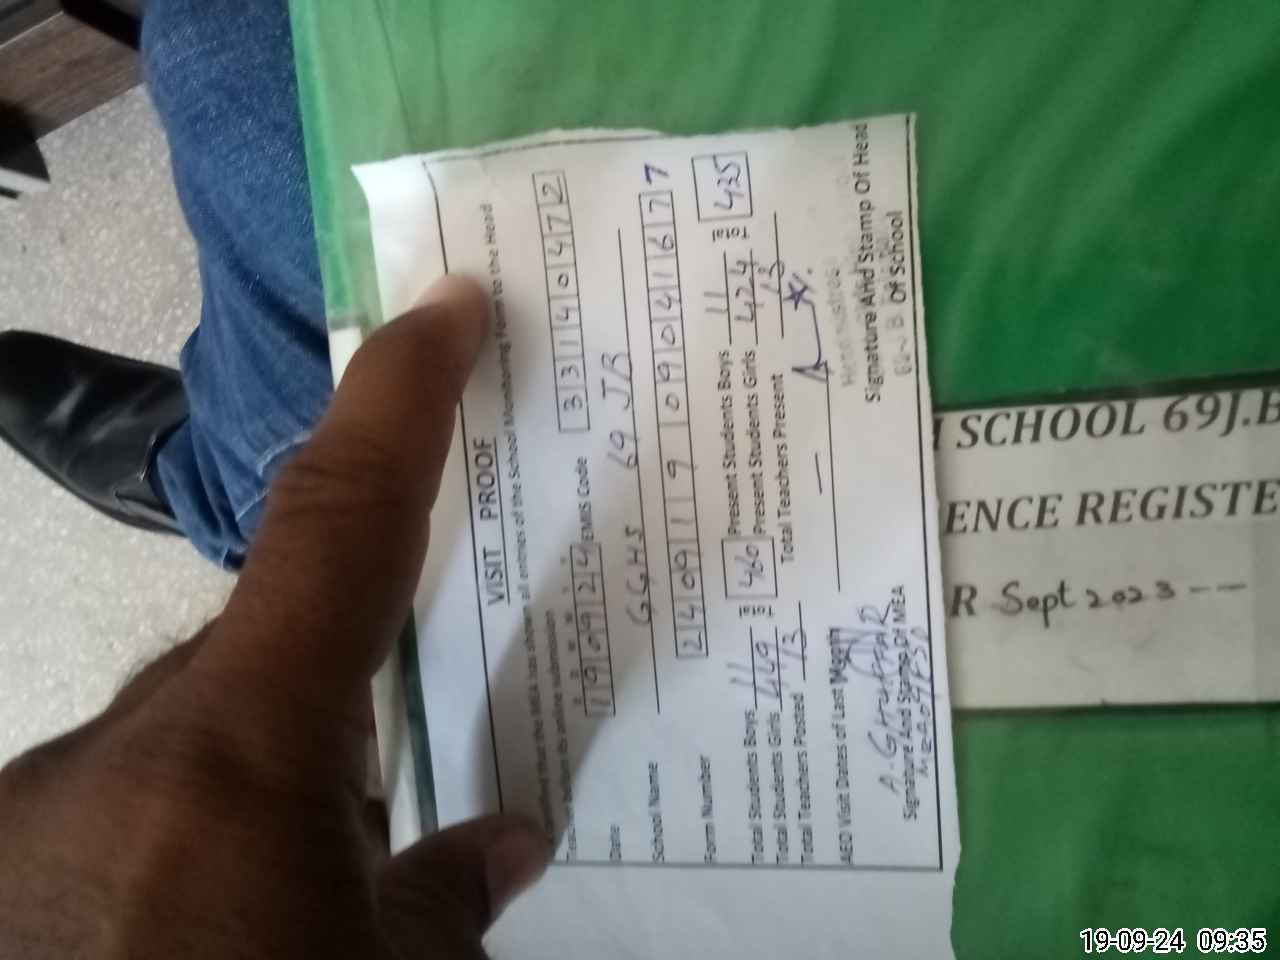 VISIT PROOF
that the MEA has shown all entries of the School Monitoring Form to the Head
before its online submission
Date 190924 EMIS Code 33140472
School Name GGHS 69 JB
Form Number 2409119 0904167 7
Total Students Boys 11 460 Present Students Boys 11 435
Total Students Girls 449 Present Students Girls 424
Total Teachers Posted 13 Total Teachers Present 13
AEO Visit Dates of Last Month
A. GHAFFAR
Signature And Stamp Of MEA
Headmistress
Signature And Stamp Of Head
Of School
SCHOOL 69J.B
ENCE REGISTE
R Sept 2023 --
19-09-24 09:35